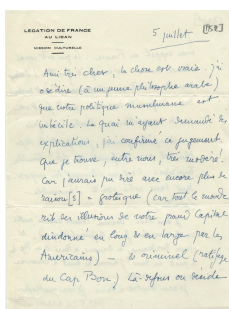 LEGATION DE FRANCE
AU LIBAN
MISSION CULTURELLE
5 juillet [152]
Ami très cher, la chose est vraie. J'ai
osé dire (à un jeune philosophe arabe)
que notre politique musulmane est
imbécile. Le Quai m'ayant demandé des
explications, j'ai confirmé ce jugement
que je trouve, entre nous, très modéré!
Car j'aurais pu dire avec encore plus de
raison[s] = grotesque (car tout le monde
rit des illusions de notre grand Capital
dindonné en long & en large par les
Américains) — & criminel (ratissage
du Cap Bon.) Là-dessus on décide